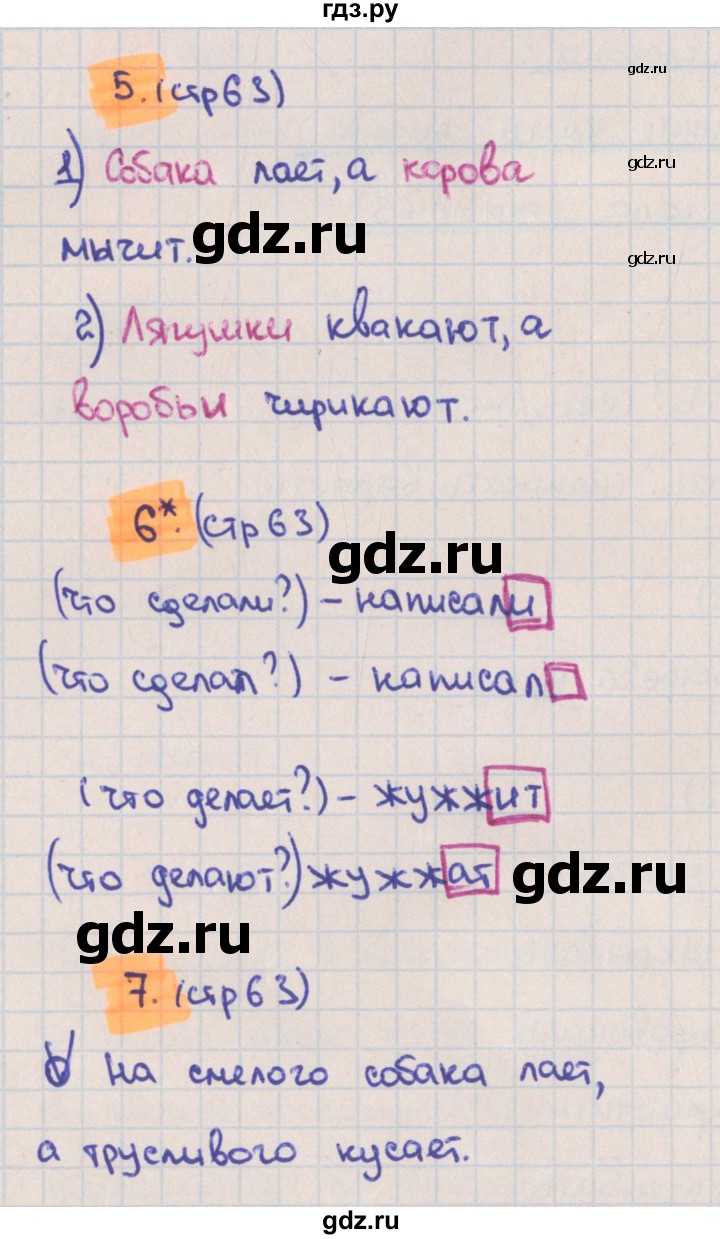 гдз.ру
5. (стр 63)
gdz.ru
1) Собака лает, а корова
gdz.ru
мычит.
gdz.ru
gdz.ru
2) Лягушки квакают, а
воробьи чирикают.
6*. (стр 63)
gdz.ru
(что сделали?) – написали
(что сделал?) – написал
(что делает?) – жужжит
(что делают?) жужжат
gdz.ru
gdz.ru
7. (стр 63)
На смелого собака лает,
а трусливого кусает.
gdz.ru